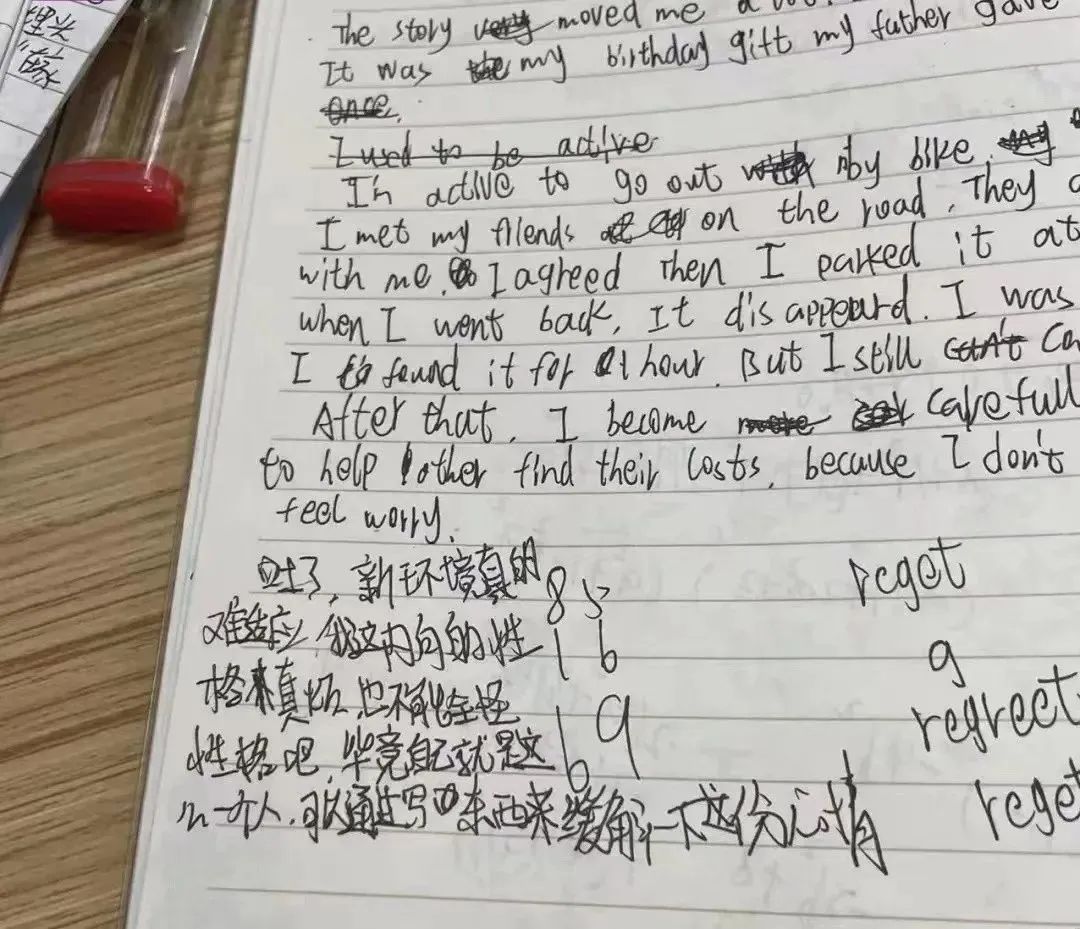 埋头
The story moved me a
It was my birthday gift my father gave
once.
I used to be active
I'm active to go out by bike.
I met my friends on the road. They
with me. I agreed Then I parked it at
when I went back, It disappeard. I was
I found it for 1 hour. But I still can't
After that, I become more carefull
to help other find their losts, because I don't
feel worry.
吐了，新环境真的
85
reget
难适应，我这内向的性
16
g
格来真的，也不能全怪
19
regreet
性格吧，毕竟自己就是这
6
么一个人，可以通过写东西来缓解一下这份心情
reget